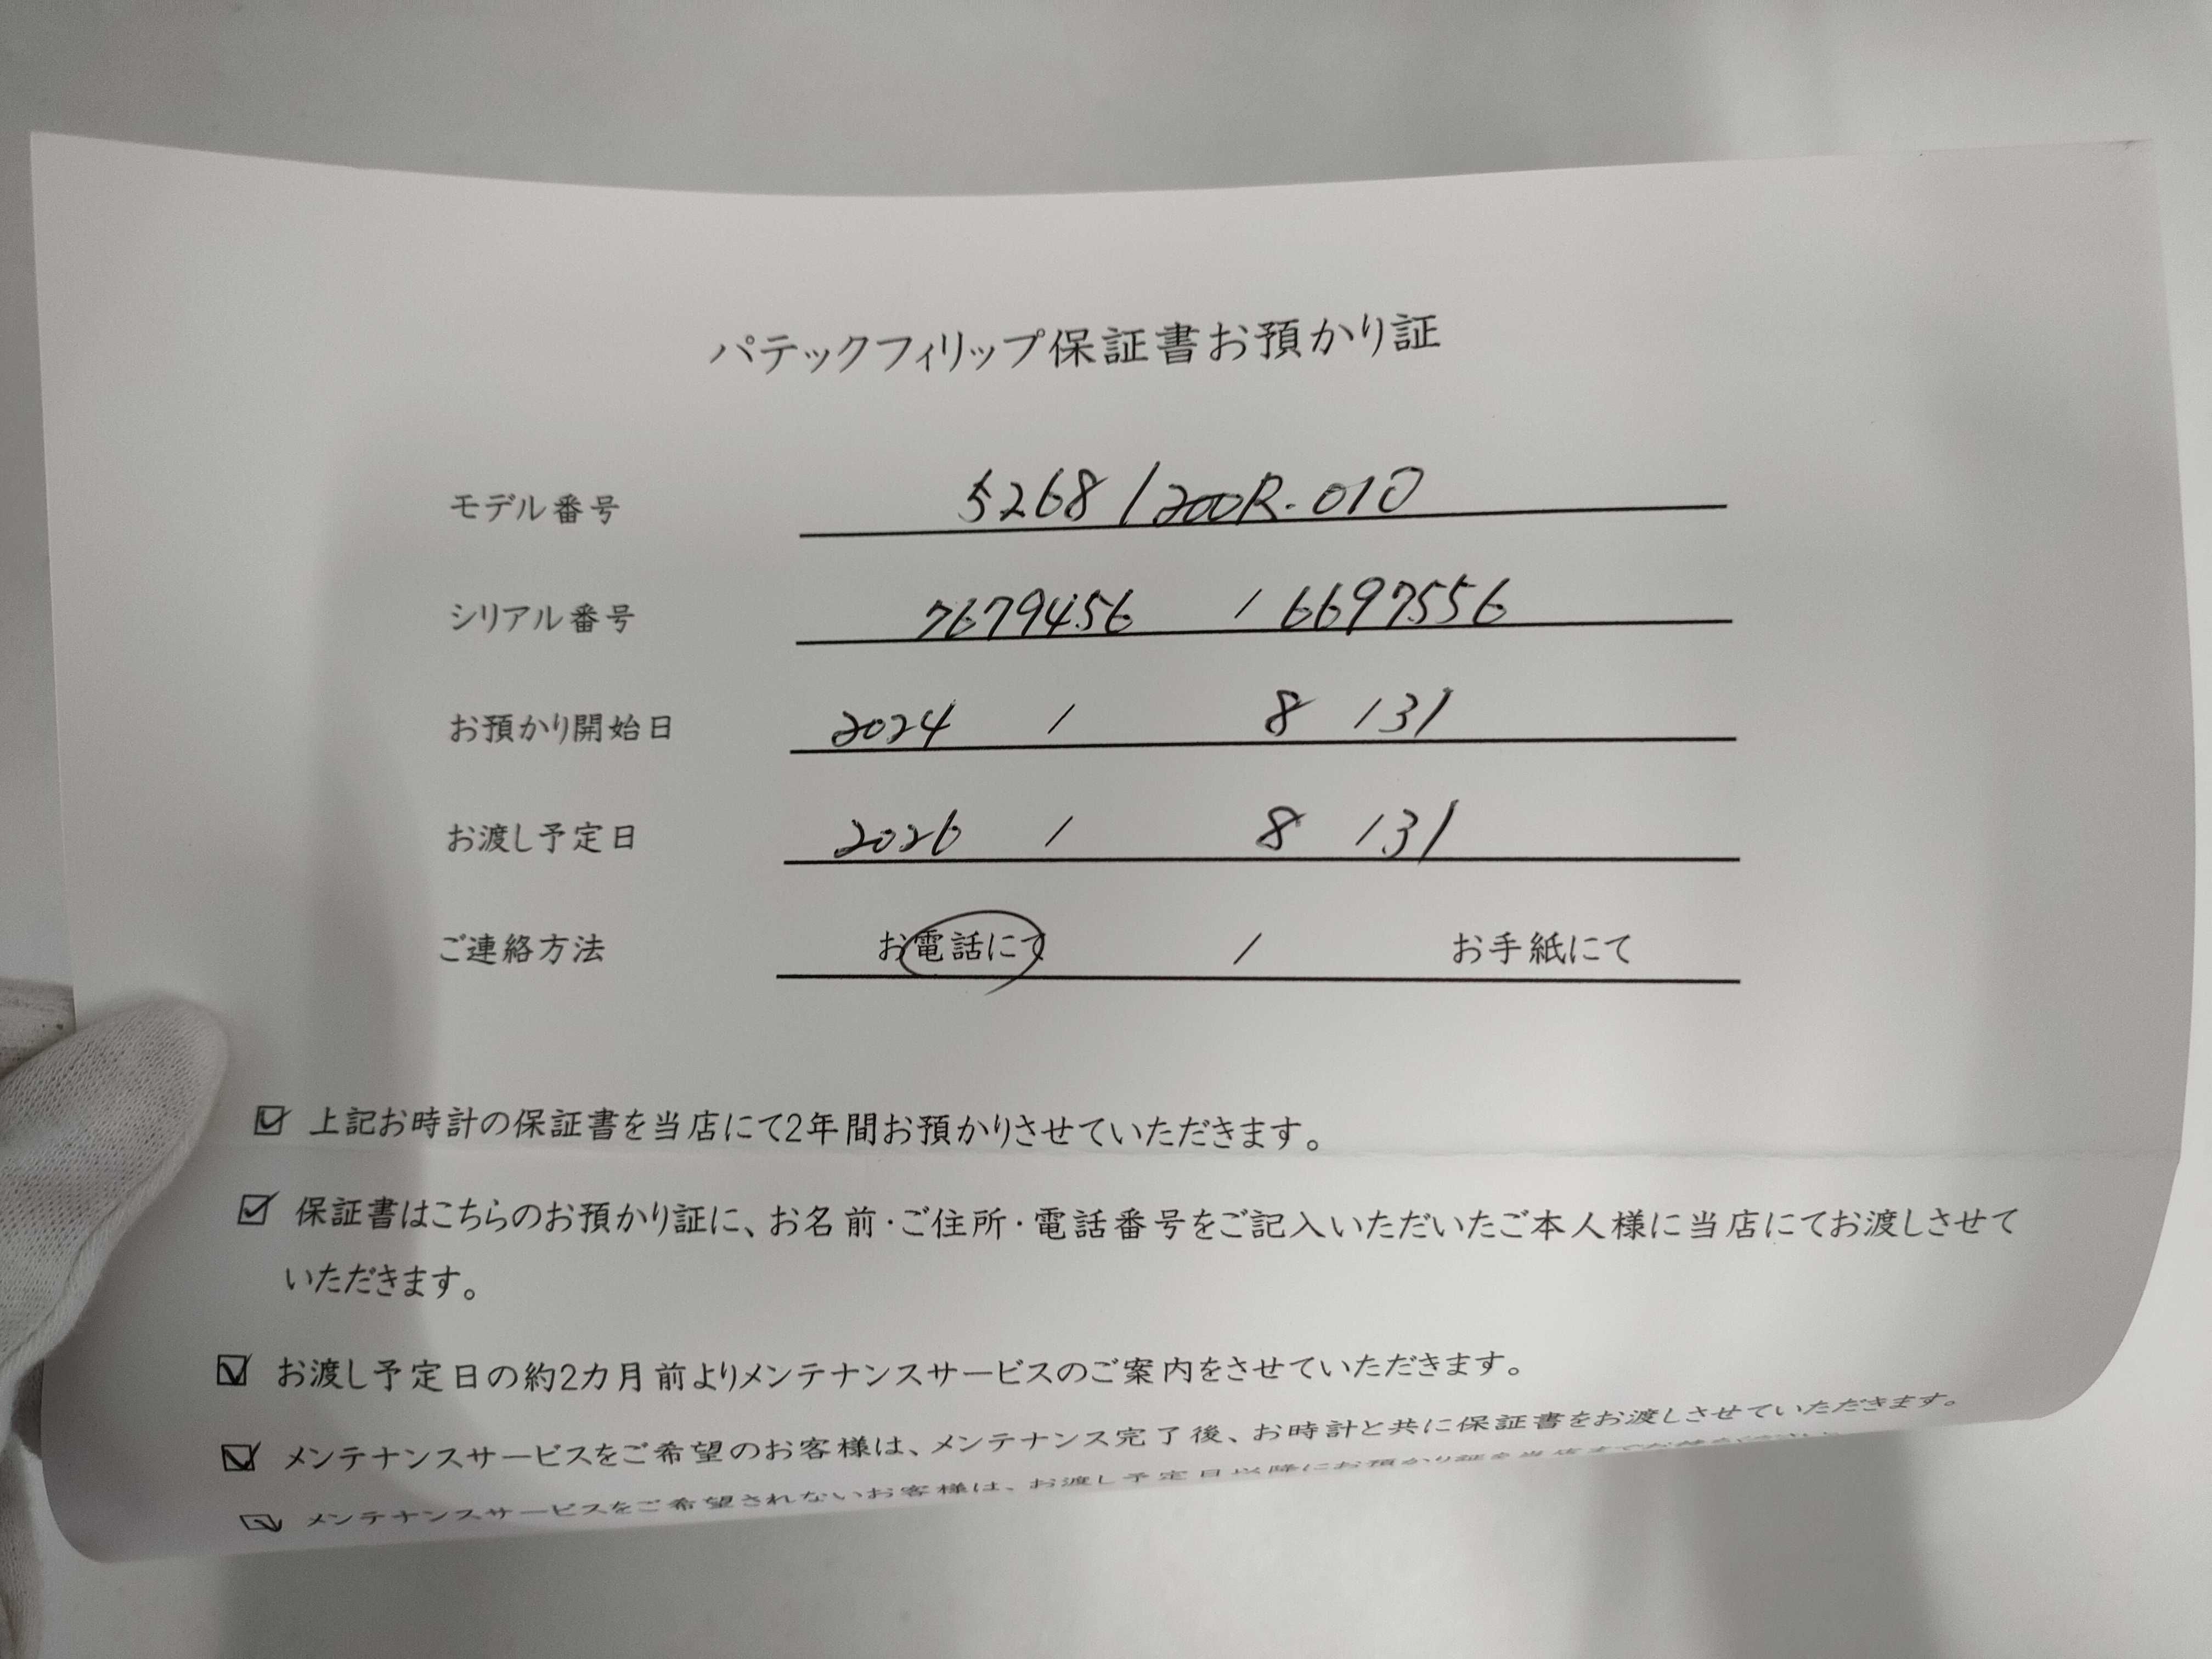 パテックフィリップ保証書お預かり証
モデル番号 5268/200R-010
シリアル番号 7679456 / 6697556
お預かり開始日 2024 / 8 / 31
お渡し予定日 2026 / 8 / 31
ご連絡方法 お電話にて / お手紙にて
☑ 上記お時計の保証書を当店にて2年間お預かりさせていただきます。
☑ 保証書はこちらのお預かり証に、お名前・ご住所・電話番号をご記入いただいたご本人様に当店にてお渡しさせて
いただきます。
☑ お渡し予定日の約2カ月前よりメンテナンスサービスのご案内をさせていただきます。
☑ メンテナンスサービスをご希望のお客様は、メンテナンス完了後、お時計と共に保証書をお渡しさせていただきます。
☑ メンテナンスサービスをご希望されないお客様は、お渡し予定日以降にお預かり証を当店まで